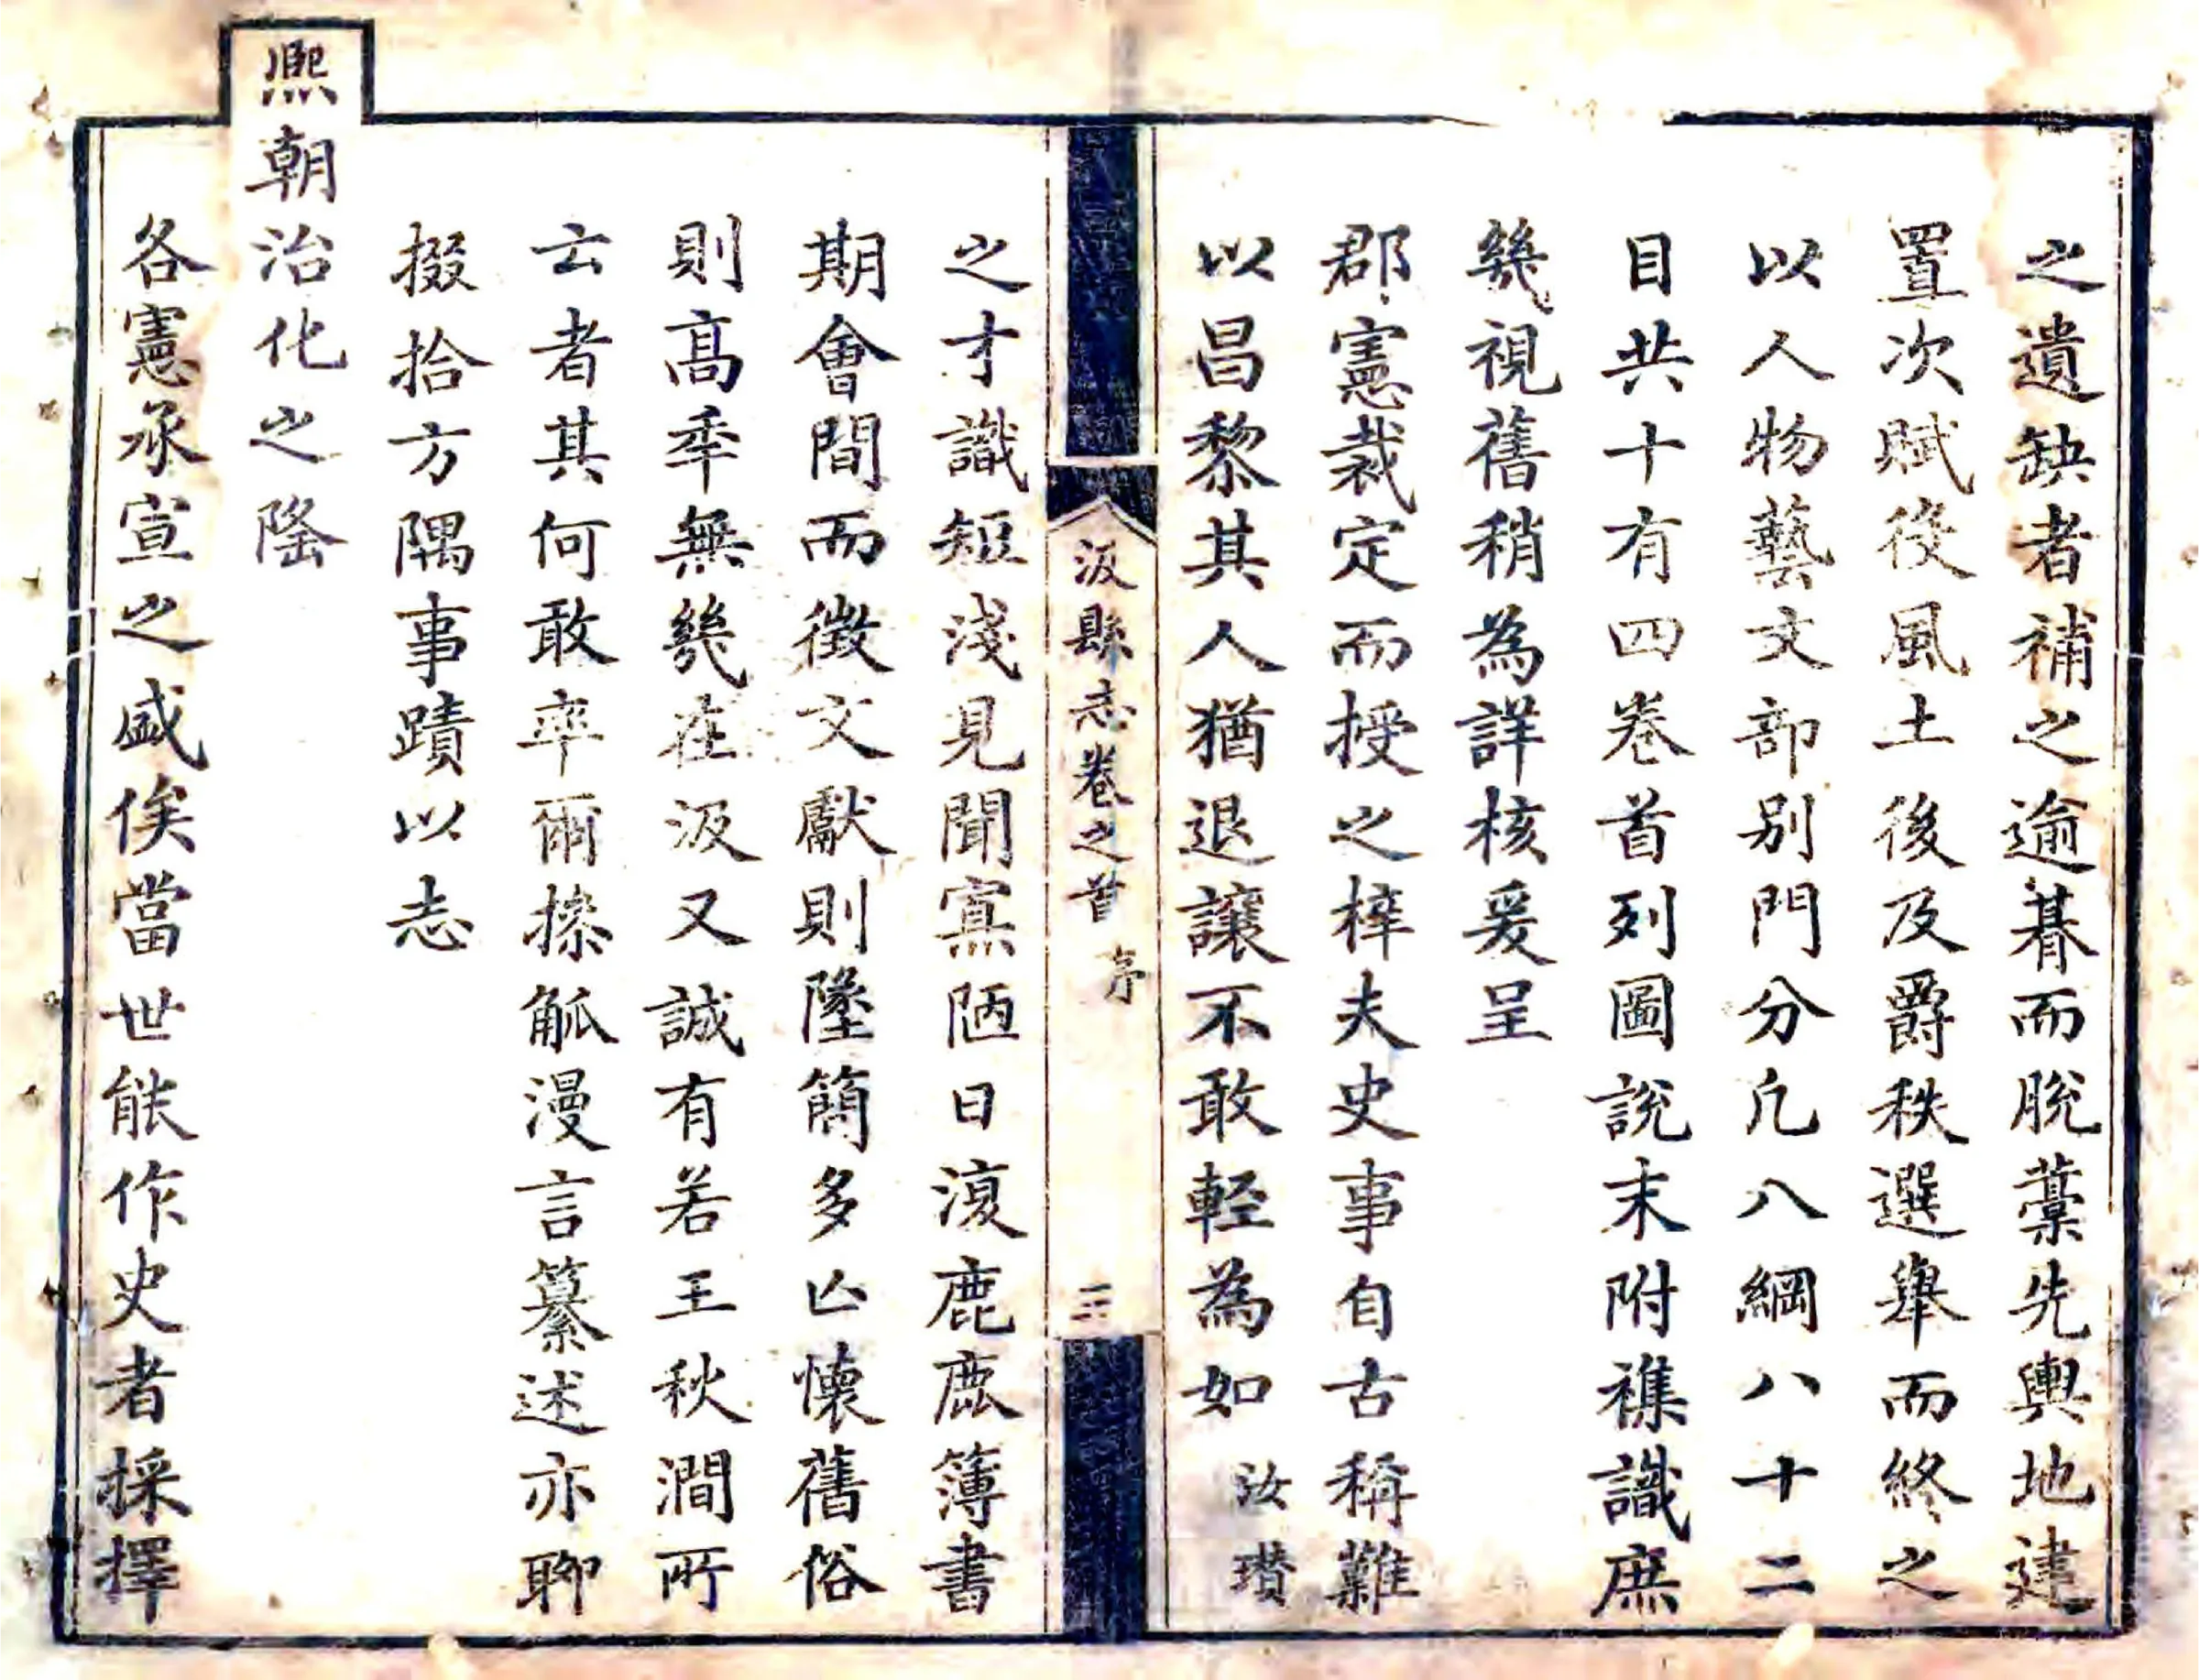 之遺缺者補之逾朞而脫藁先輿地建
置次賦役風土後及爵秩選舉而終之
以人物藝文部别門分凢八綱八十二
目共十有四卷首列圖說末附襍識庶
幾視舊稍為詳核爰呈
郡憲裁定而授之梓夫史事自古稱難
以昌黎其人猶退讓不敢輕為如汝瓚
汲縣志卷之首 序 三
之才識短淺見聞寡陋日復鹿鹿簿書
期會間而徵文獻則墜簡多亾懷舊俗
則高年無幾在汲又誠有若王秋澗所
云者其何敢率爾搽觚漫言纂述亦聊
掇拾方隅事蹟以志
熈朝治化之隆
各憲承宣之盛俟當世能作史者採擇